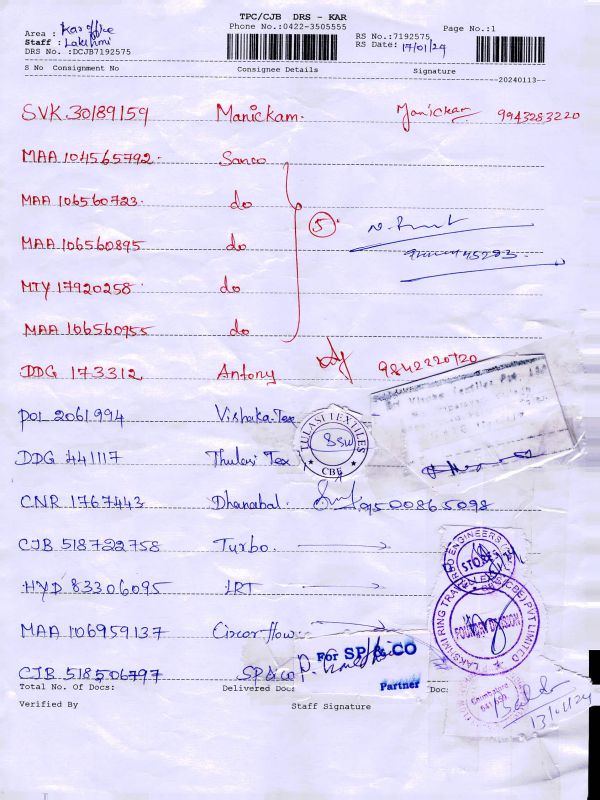 TPC/CJB DRS - KAR
Phone No.:0422-3505555
Page No.:1
Area : Kar office
Staff : Lakshmi
DRS No. :DCJB7192575
RS No.:7192575
RS Date: 17/01/24
S No Consignment No Consignee Details Signature
20240113
SVK 30189159 Manickam. Manickam 9943283220
MAA 104565792. Sanco
MAA 106560723. do
5
MAA 106560895 do
45293
MTY 17920258 do
MAA 106560955 do
DDG 173312 Antony 9842220720
POI 2061994 Vishaka Tex
DDG 441117 Thulasi Tex
TULASI TEXTILES
CBE
CNR 1767443 Dhanabal. 9500865098
CJB 518722758 Turbo.
STORES
HYD 83306095 LRT
LAKSHMI RING TRAVELLERS (CBE) PVT LIMITED
FOUNDRY DIVISION
MAA 106959137 Circor flow
For SP & CO
Partner
CJB 518506797 SP & co
Total No. Of Docs: Delivered Doc: Doc:
Coimbatore
13/01/24
Verified By Staff Signature